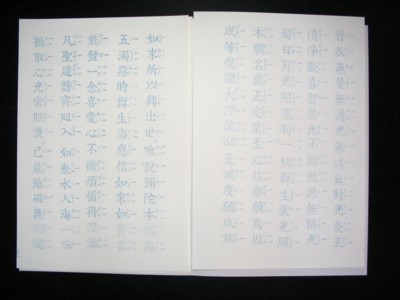 普放無量無邊光無碍無對光炎王
清淨歡喜智慧光不斷難思無稱光
超日月光照塵刹一切群生蒙光照
本願名號正定業至心信樂願爲因
成等覺證大涅槃必至滅度願成就
如來所以興出世唯說彌陀本願海
五濁惡時群生海應信如來如實言
能發一念喜愛心不斷煩惱得涅槃
凡聖逆謗齊廻入如衆水入海一味
攝取心光常照護已能雖破無明闇